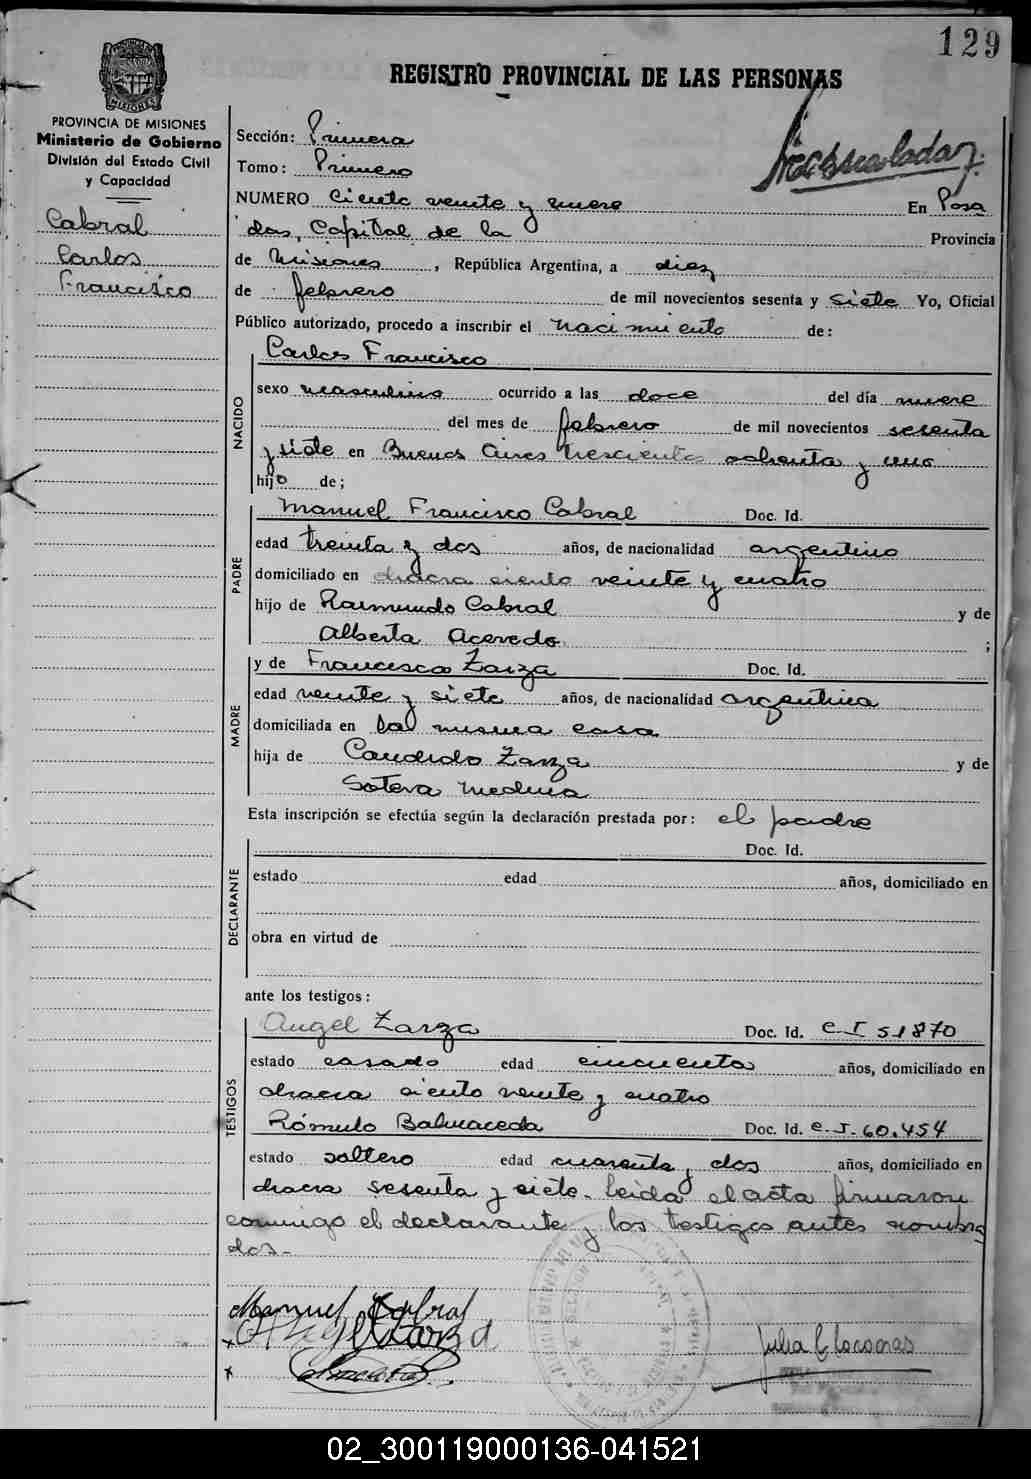 129
REGISTRO PROVINCIAL DE LAS PERSONAS
PROVINCIA DE MISIONES
Ministerio de Gobierno
División del Estado Civil
y Capacidad
Cabral
Carlos
Francisco
Sección: Primera
Tomo: Primero
NUMERO ciento veinte y nueve En Posa
das, Capital de la Provincia
de Misiones, República Argentina, a diez
de febrero de mil novecientos sesenta y siete Yo, Oficial
Público autorizado, procedo a inscribir el nacimiento de:
NACIDO
Carlos Francisco
sexo masculino ocurrido a las doce del día nueve
del mes de febrero de mil novecientos sesenta
y siete en Buenos Aires trescientos ochenta y uno
hijo de;
PADRE
Manuel Francisco Cabral Doc. Id.
edad treinta y dos años, de nacionalidad argentino
domiciliado en chacra ciento veinte y cuatro
hijo de Raimundo Cabral y de
Alberta Acevedo ;
MADRE
y de Francisca Zarza Doc. Id.
edad veinte y siete años, de nacionalidad argentina
domiciliada en la misma casa
hija de Candido Zarza y de
Sotera Medina
Esta inscripción se efectúa según la declaración prestada por: el padre
DECLARANTE
Doc. Id.
estado edad años, domiciliado en
obra en virtud de
ante los testigos:
TESTIGOS
Angel Zarza Doc. Id. C.I 51870
estado casado edad cincuenta años, domiciliado en
chacra ciento veinte y cuatro
Rómulo Balmaceda Doc. Id. C.I. 60.454
estado soltero edad cuarenta y dos años, domiciliado en
chacra sesenta y siete. Leida el acta firmaron
conmigo el declarante y los testigos antes nombra
dos.-
Manuel Cabral
Angel Zarza
02_300119000136-041521